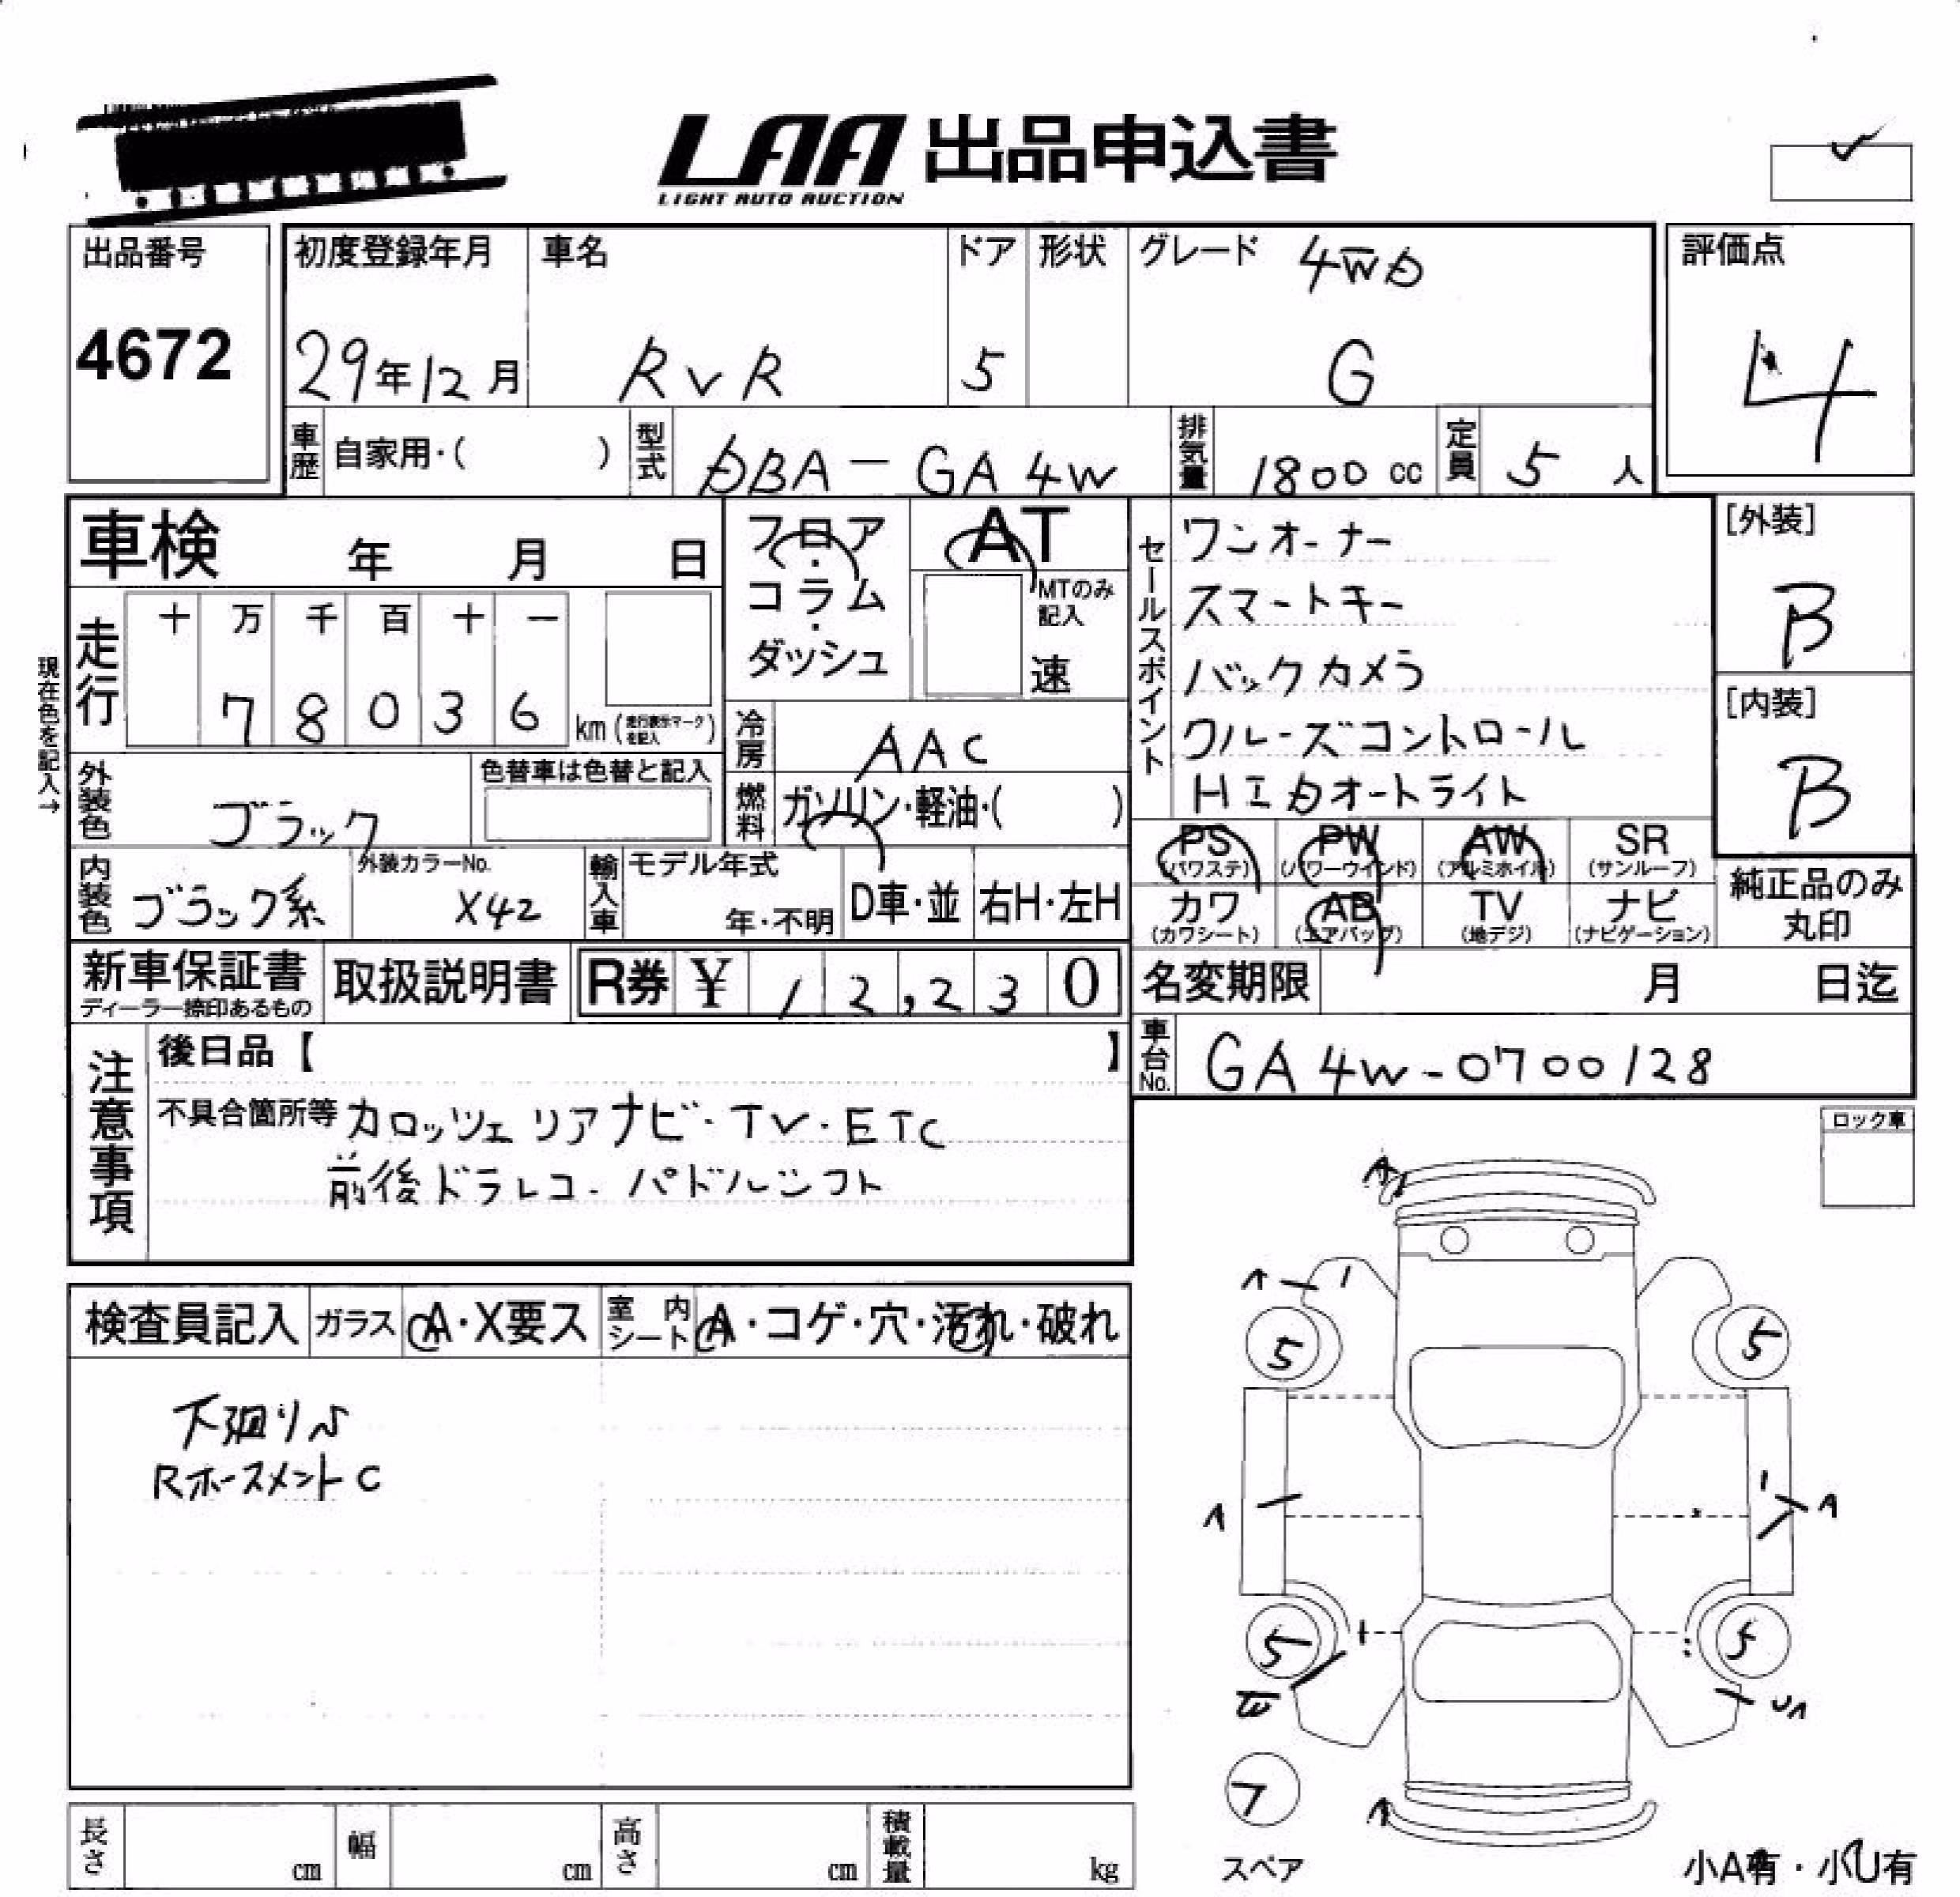 LAA 出品申込書
LIGHT AUTO AUCTION
出品番号
4672
初度登録年月
29年12月
車名
RVR
ドア
5
形状
グレード 4WD
G
評価点
4
車歴 自家用・( )
型式 DBA-GA4W
排気量 1800 cc
定員 5 人
車検 年 月 日
フロア・コラム・ダッシュ
AT
MTのみ記入
速
セールスポイント
ワンオーナー
スマートキー
バックカメラ
クルーズコントロール
HIDオートライト
[外装]
B
[内装]
B
現在色を記入→
走行
十 万 千 百 十 一
7 8 0 3 6 km (走行表示マークを記入)
冷房 AAC
外装色 ブラック
色替車は色替と記入
燃料 ガソリン・軽油・( )
PS (パワステ)
PW (パワーウインド)
AW (アルミホイル)
SR (サンルーフ)
カワ (カワシート)
AB (エアバッグ)
TV (地デジ)
ナビ (ナビゲーション)
純正品のみ丸印
内装色 ブラック系
外装カラーNo.
X42
輸入車
モデル年式
年・不明
D車・並
右H・左H
新車保証書
ディーラー捺印あるもの
取扱説明書
R券 ¥ 12,230
名変期限 月 日迄
車台No. GA4W-0700128
注意事項
後日品【 】
不具合箇所等 カロッツェリアナビ・TV・ETC
前後ドラレコ・パドルシフト
ロック車
検査員記入
ガラス A・X要ス
室内シート A・コゲ・穴・汚れ・破れ
下廻りS
RホースメントC
A
A
5
5
A
A
5
5
UA
7
スペア
A
小A有・小U有
長さ cm
幅 cm
高さ cm
積載量 kg